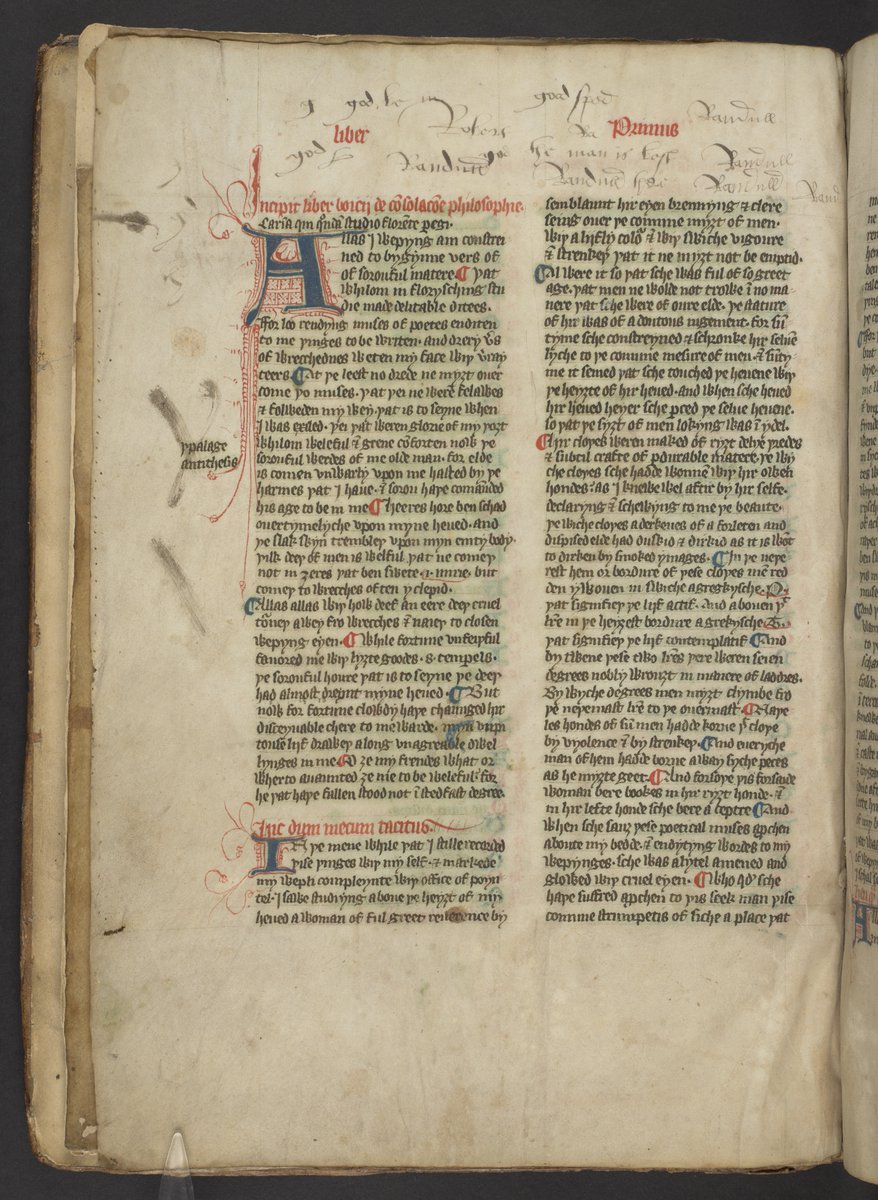 god be
god sped
Robert
Randull
liber
Primus
god
Randull
he man is
Randull
Randull
Randull
Incipit liber boicij de cōsolacōe philosophie.
Carīa qui q̄ndā studio florēte pegi.
Allas I wepyng am constrei
ned to bygynne vers of
of soroufiul matere. ¶ yat
whilom in florysching stu
die made delitable ditees.
ffor loo rendyng muses of poetes enditen
to me yinges to be writen. and drery v̄s
of wrecchednes weten my face wiy veray
teers. ¶ At ye leest no drede ne myȝt ouer
come yo muses. yat yei ne werē felawes
& folweden my wey. yat is to seyne when
I was exiled. yei yat weren glorie of my yoȝt
whilom weleful & grene cōforten now ye
sorouful werdes of me olde man. for elde
is comen vnwarly vpon me hasted by ye
harmes yat I haue. & sorou haye comāūded
his age to be in me ¶ heeres hore ben schad
ouertymelyche vpon myne heued. and
ye slak skyn trembley vpon myn emty body.
yilk deey of men is welful yat ne comey
not in ȝeres yat ben swete .i. mirie. but
comey to wrecches often yclepid.
¶ Allas allas wiy how deef an eere deey cruel
tōuney awey fro wrecches & naiey to closen
wepyng eyen. ¶ While fortune vnfeiyful
fauored me wiy lyȝte goodes .s. tempels.
ye sorouful houre yat is to seyne ye deey
had almost dreynt myne heued. ¶ But
now for fortune clowdy haye chaunged hir
disceyuable chere to mewarde. myn vnpi
touse lijf drawey along vnagreable dwel
lynges in me. ¶ O ȝe my frendes what or
wherto auaunted ȝe me to be weleful. for
he yat haye fallen stood not ī stedfast degree.
ypalage
antithesis
hic dum mecum tacitus.
In ye mene while yat I stille recorded
yise yinges wiy my self. & markede
my weply compleynte wiy office of poyn
tel. I sawe stondyng aboue ye heyȝt of my
heued a woman of ful greet reuerence by
semblaunt hir eyen brennyng & clere
seing ouer ye comune myȝt of men.
wiy a lijfly colo͛ & wiy swiche vigoure
& strenkey yat it ne myȝt not be emptid.
¶ Al were it so yat sche was ful of so greet
age. yat men ne wolde not trowe ī no ma
nere yat sche were of oure elde. ye stature
of hir was of a doutous iugement. for sū
tyme sche constreyned & schronke hir seluē
lyche to ye comune mesure of men. & sūty
me it semed yat sche touched ye heuene wiy
ye heyȝte of hir heued. and when sche heued
hir heued heyer sche ꝑced ye selue heuene.
so yat ye syȝt of men lokyng was ī ydel.
¶ hir cloyes weren maked of ryȝt delye yredes
& subtil crafte of ꝑdurable matere. ye wy
che cloyes sche hadde wouuen wiy hir owen
hondes: as I knewe wel aftir by hir selfe.
declaryng & schewyng to me ye beaute.
ye wiche cloyes a derkenes of a forleten and
dispised elde had duskid & dirkid as it is wōt
to dirken by smoked ymages. ¶ In ye neye
rest hem or bordure of yese cloyes mē red
den ywouen in swiche a gregkysche. P.
yat signifiey ye lijf actif. And abouen yt
lr̄e in ye heyȝest bordure a grekysche. T.
yat signifiey ye lijf contemplatif. ¶ And
by twene yese two lr̄es yere weren seien
degrees nobly wrouȝt in manere of laddres.
By wyche degrees men myȝt clymbe fro
ye neyemast lr̄e to ye ouermast. ¶ Naye
les hondes of sū men hadde korue yt cloye
by vyolence & by strenkey. ¶ And eueryche
man of hem hadde borne away syche peces
as he myȝte geet. ¶ And forsoye yis forsaide
woman bere bookes in hir ryȝt honde. &
in hir lefte honde sche bere a ceptre ¶ And
when sche sauȝ yese poetical muses aꝓchen
aboute my bedde. & endytyng wordes to my
wepynges. sche was alytel amened and
glowed wiy cruel eyen. ¶ Who qd̄ sche
haye suffred aꝓchen to yis seek man yise
comune strumpetis of siche a place yat